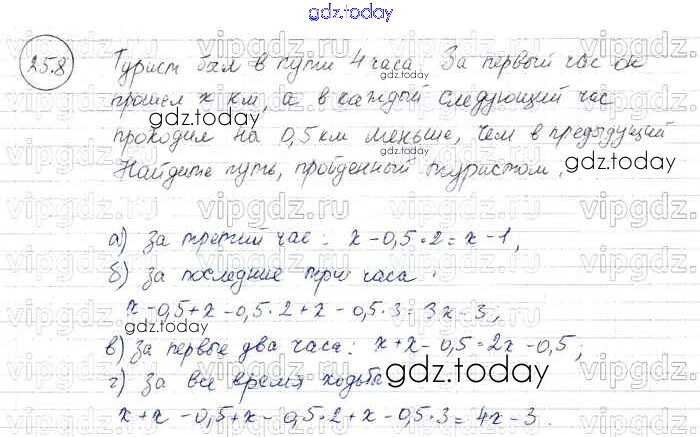 gdz.today
25.8
Турист был в пути 4 часа. За первый час он
прошел x км, а в каждый следующий час
проходил на 0,5 км меньше, чем в предыдущий
Найдите путь, пройденный туристом.
а) за третий час: x - 0,5 · 2 = x - 1,
б) за последние три часа:
x - 0,5 + x - 0,5 · 2 + x - 0,5 · 3 = 3x - 3,
в) за первые два часа: x + x - 0,5 = 2x - 0,5;
г) за все время ходьбы
x + x - 0,5 + x - 0,5 · 2 + x - 0,5 · 3 = 4x - 3.
gdz.today
gdz.today
gdz.today
gdz.today
gdz.today
gdz.today
vipgdz.ru